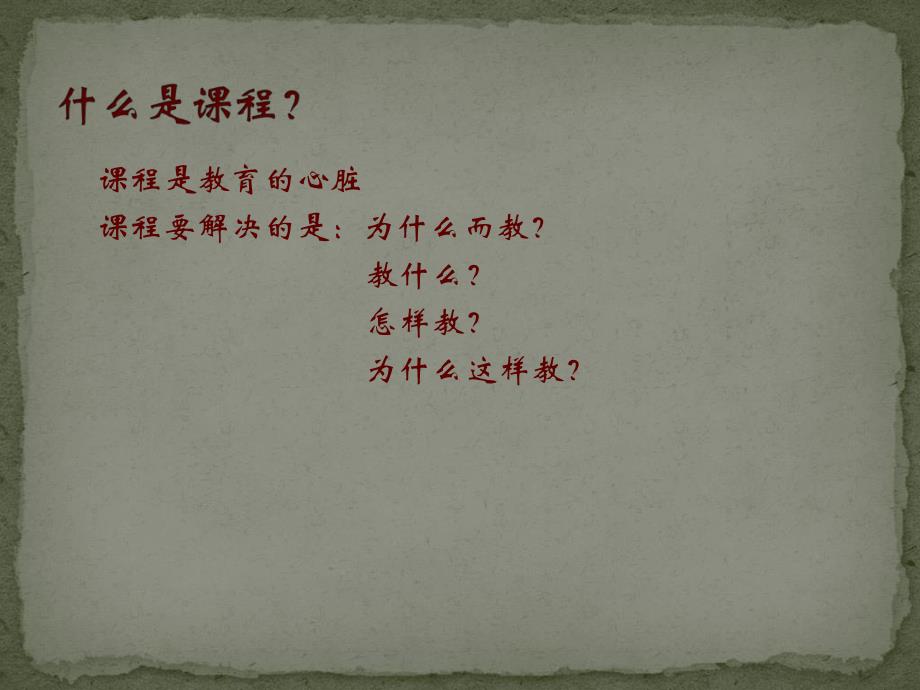 什么是课程？
课程是教育的心脏
课程要解决的是：为什么而教？
教什么？
怎样教？
为什么这样教？